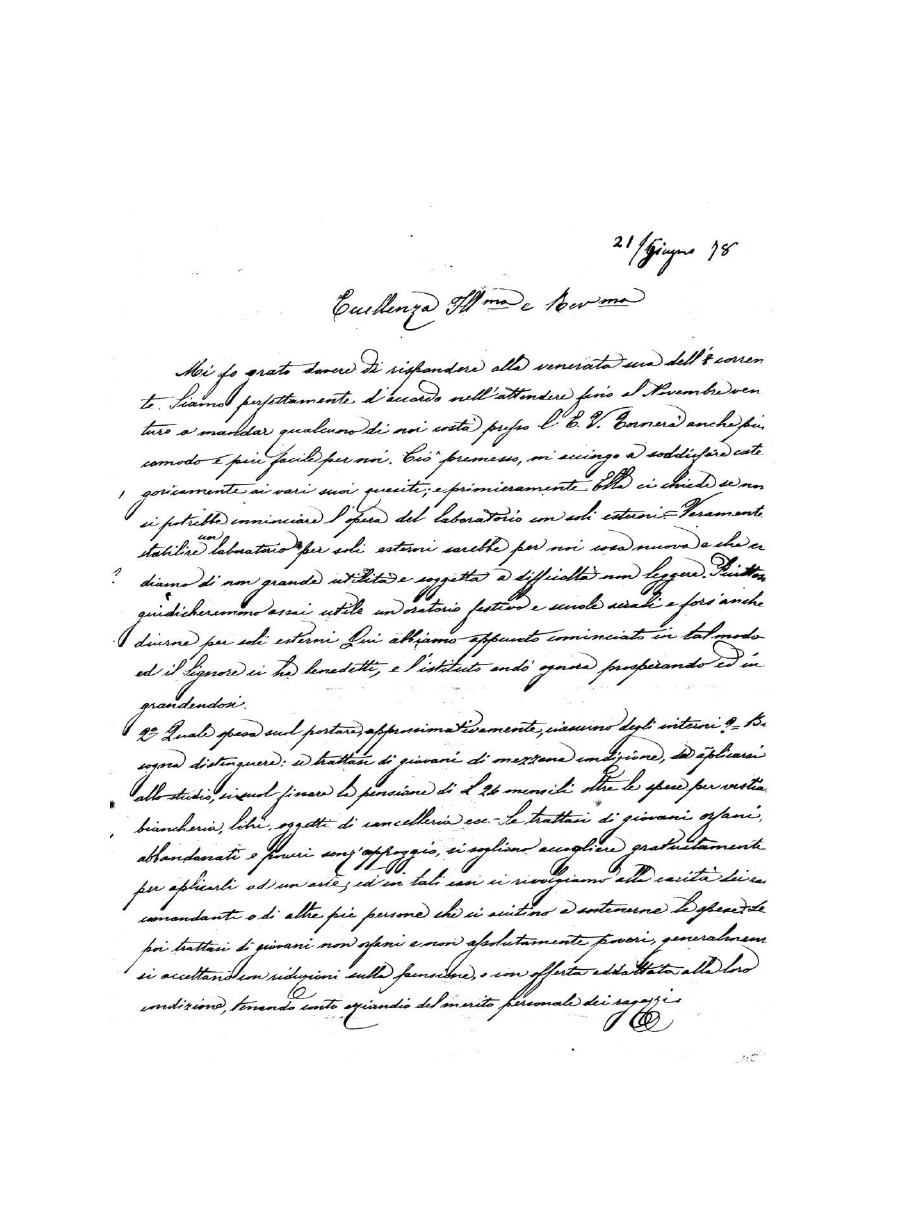 21/Giugno 78
Eccellenza Ill.ma e Rev.ma
Mi fo grato dovere di rispondere alla venerata sua dell'8 corren
te. Siamo perfettamente d'accordo nell'attendere fino al Novembre ven
turo a mandar qualcuno di noi costà presso l'E. V. Tornerà anche più
comodo e più facile per noi. Ciò premesso, mi accingo a soddisfare cate
goricamente ai vari suoi quesiti; e primieramente Ella ci chiede se non
si potrebbe cominciare l'opera del laboratorio con soli esterni = Veramente
stabilire un laboratorio per soli esterni sarebbe per noi cosa nuova e che cre
diamo di non grande utilità e soggetta a difficoltà non leggere. Piuttosto
giudicheremmo assai utile un oratorio festivo e scuole serali e fors'anche
diurne per soli esterni. Qui abbiamo appunto cominciato in tal modo
ed il Signore ci ha benedetti, e l'istituto andò ognora prosperando ed in
grandendosi.
2º Quale spesa suol portare, approssimativamente, ciascuno degli interni? = Bi
sogna distinguere: se trattasi di giovani di mezzana condizione, da aplicarsi
allo studio, si suol fissare la pensione di L 24 mensili oltre le spese per vestia
biancheria, libri, oggetti di cancelleria ecc - Se trattasi di giovani orfani,
abbandonati e poveri senz'appoggio, si sogliono accogliere gratuitamente
per aplicarli ad un arte; ed in tali casi ci rivolgiamo alla carità dei rac
comandanti o di altre pie persone che ci aiutino a sostenerne le spese. = Se
poi trattasi di giovani non orfani e non assolutamente poveri, generalmen
si accettano con riduzioni sulla pensione, o con offerta addattata alla loro
condizione, tenendo conto eziandio del merito personale dei ragazzi.